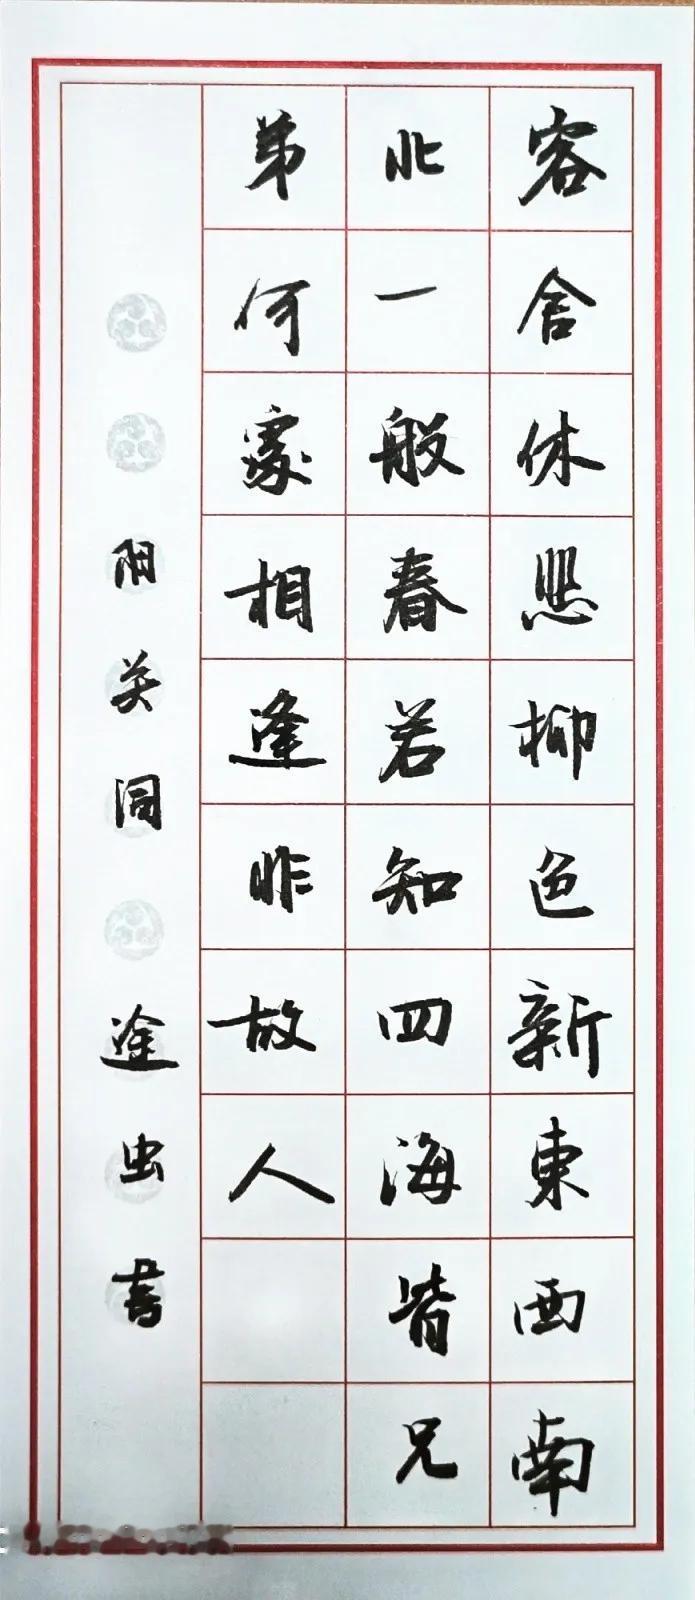 客舍休悲柳色新东西南
北一般春若知四海皆兄
弟何处相逢非故人
阳关 途虫书